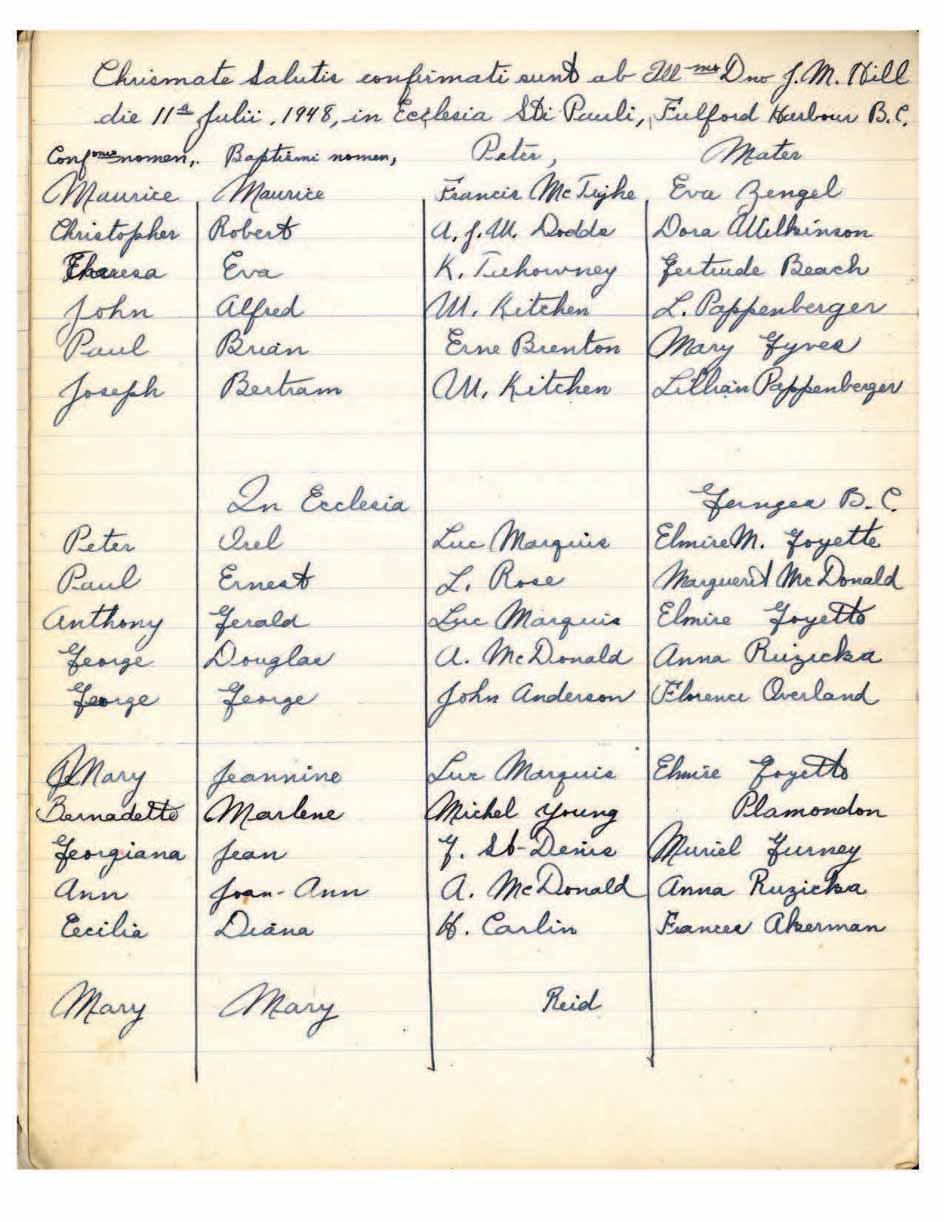 Chrismate Salutis confirmati sunt ab Ill mo Dno J. M. Hill
die 11a Julii, 1948, in Ecclesia Sti Pauli, Fulford Harbour B.C.
Confonis nomen, Baptismi nomen, Pater, Mater
Maurice Maurice Francis McTighe Eva Zengel
Christopher Robert A. J. W. Dodds Dora Wilkinson
Theresa Eva K. Eva Gertrude Beach
John Alfred W. Kitchen L. Pappenberger
Paul Brian Erne Brenton Mary Gyves
Joseph Bertram W. Kitchen Lillian Pappenberger
In Ecclesia Ganges B.C.
Peter Orel Luc Marquis Elmire M. Goyette
Paul Ernest L. Rose Marguerit McDonald
Anthony Gerald Luc Marquis Elmire Goyette
George Douglas A. McDonald Anna Ruzicka
George George John Anderson Florence Overland
Mary Jeannine Luc Marquis Elmire Goyette
Bernadette Marlene Michel Young Plamondon
Georgiana Jean Y. St-Denis Muriel Gurney
Ann Joan-Ann A. McDonald Anna Ruzicka
Cecilia Diana H. Carlin Frances Akerman
Mary Mary Reid